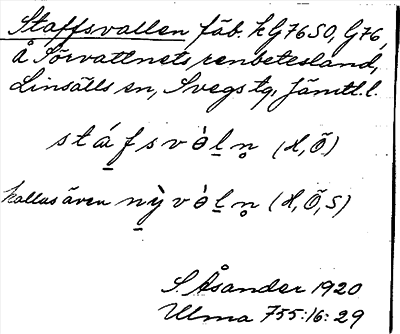 Staffsvallen fäb. k G 76 SO, G 76,
å Sörvattnets renbetesland,
Linsälls sn, Svegs tg, Jämtl. l.
stá̱fsvòḻn̥ (H, Õ)
kallas även ṉỳvòḻn̥ (H, Õ, S)
S. Åsander 1920
Ulma 755:16:29